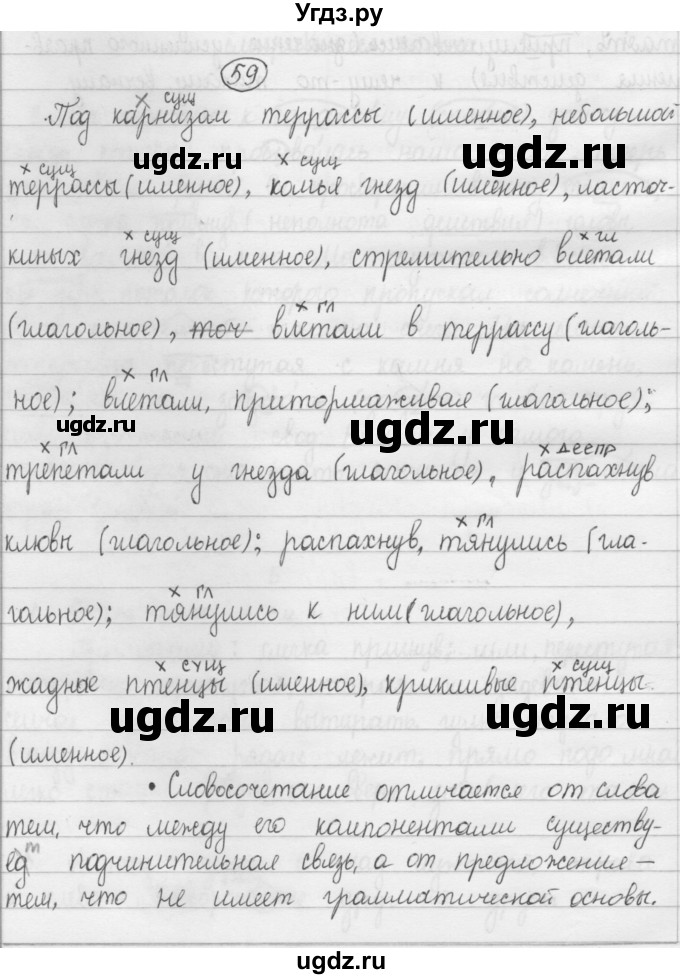 Угдз.ру
59
х сущ
Под карнизом террассы (именное), небольшой
х сущ х сущ
террассы (именное), комья гнезд (именное), ласточ-
х сущ х гл
киных гнезд (именное), стремительно влетали
х гл
(глагольное), точ влетали в террассу (глаголь-
х гл
ное); влетали, притормаживая (глагольное);
х гл х деепр
трепетали у гнезда (глагольное), распахнув
х гл
клювы (глагольное); распахнув, тянулись (гла-
х гл
гольное); тянулись к ним (глагольное),
х сущ х сущ
жадные птенцы (именное), крикливые птенцы
(именное).
• Словосочетание отличается от слова
тем, что между его компонентами существу-
ет подчинительная связь, а от предложения –
тем, что не имеет грамматической основы.
ugdz.ru
ugdz.ru
ugdz.ru
ugdz.ru
ugdz.ru
ugdz.ru
ugdz.ru
ugdz.ru
ugdz.ru
Угдз.ру